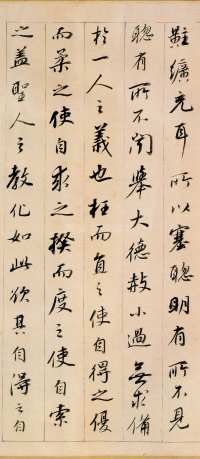 黈纊充耳所以塞聰明有所不見
聰有所不聞舉大德赦小過無求備
於一人之義也枉而直之使自得之優
而柔之使自求之揆而度之使自索
之蓋聖人之教化如此欲其自得之自